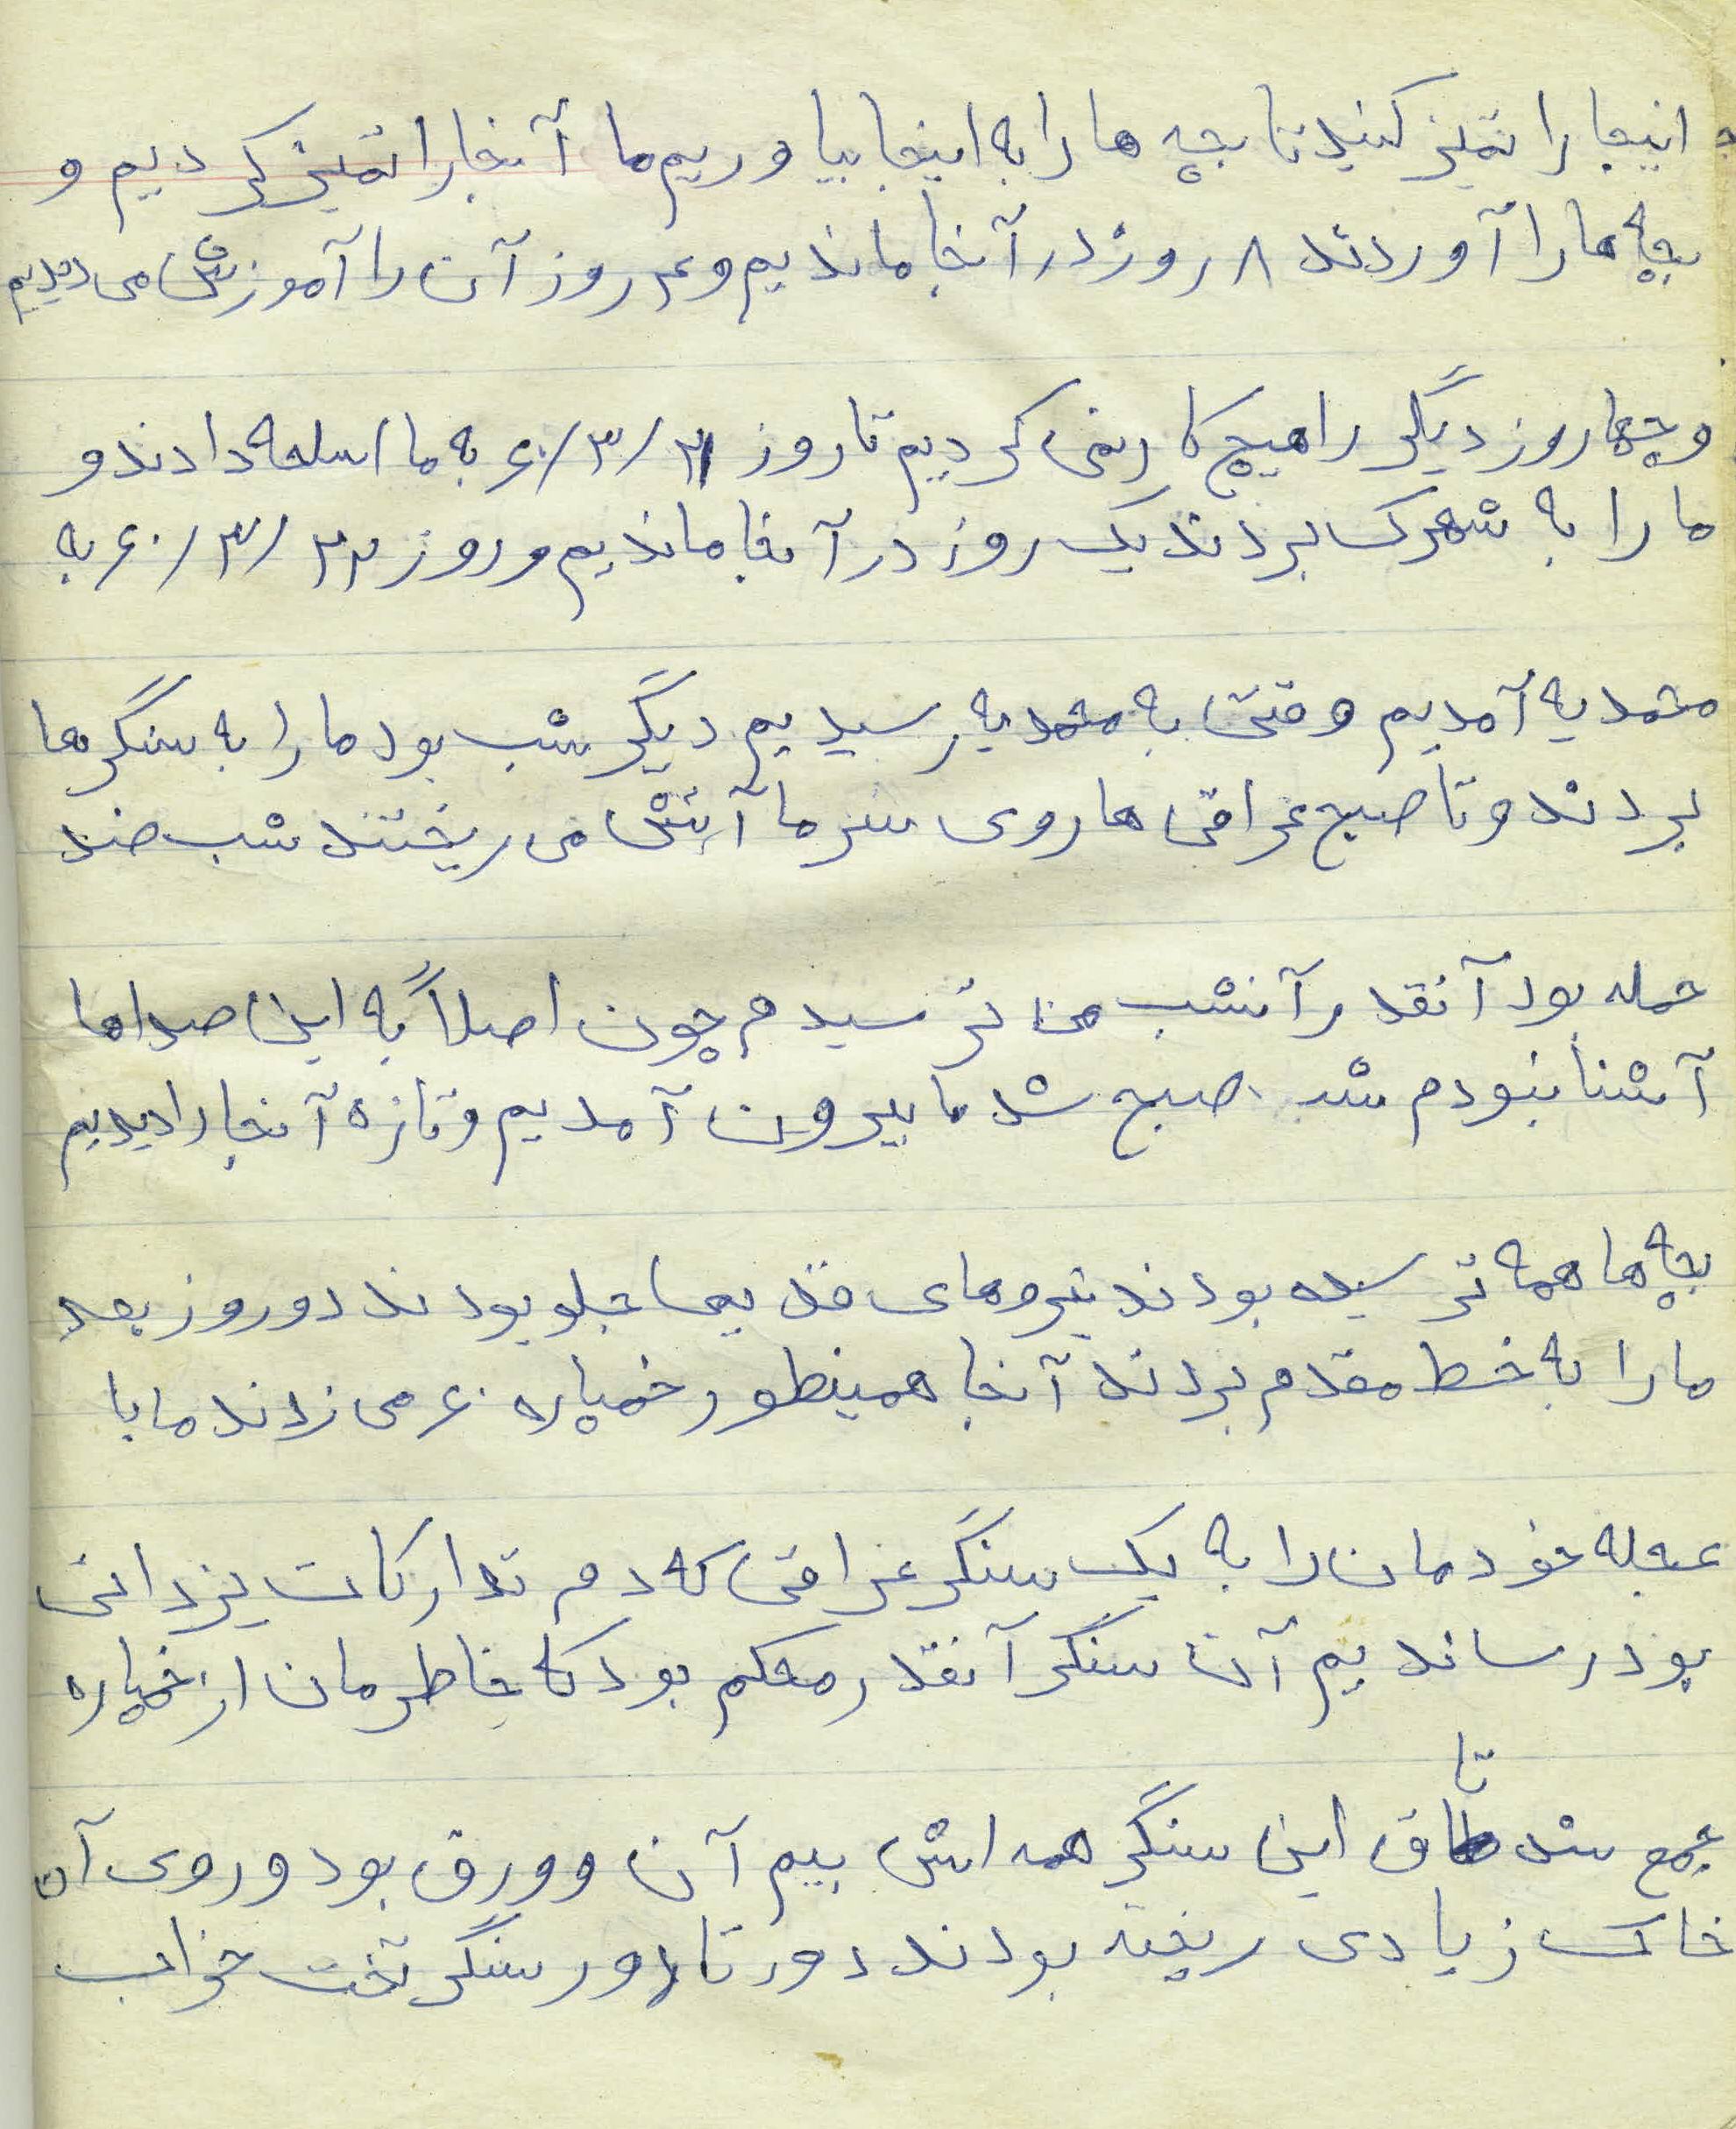 اینجا را تمیز کنید تا بچه ها را به اینجا بیاوریم ما آنجا را تمیز کردیم و
بچه ها را آوردند ۸ روز در آنجا ماندیم و ۴ روز آن را آموزش می دیدیم
و چهار روز دیگر را هیچ کار نمی کردیم تا روز ۶۰/۳/۲۱ به ما اسلحه دادند و
ما را به شهرک بردند یک روز در آنجا ماندیم و روز ۶۰/۳/۲۲ به
محمدیه آمدیم وقتی به محمدیه رسیدیم دیگر شب بود ما را به سنگر ها
بردند و تا صبح عراقی ها روی سر ما آتش می ریختند شب ضد
حمله بود آنقدر آنشب من ترسیدم چون اصلاً به این صداها
آشنا نبودم صبح شد ما بیرون آمدیم و تازه آنجا را دیدیم
بچه ها همه ترسیده بودند نیروهای قدیمی جلو بودند دو روز بعد
ما را به خط مقدم بردند آنجا همینطور خمپاره ۶۰ می زدند ما با
عجله خودمان را به یک سنگر عراقی که دم تدارکات یزدانی
بود رساندیم آن سنگر آنقدر محکم بود که خاطرمان از خمپاره
جمع شد تاق این سنگر همه اش بیم آن و ورق بود و روی آن
خاک زیادی ریخته بودند دور تا دور سنگر تخت خواب